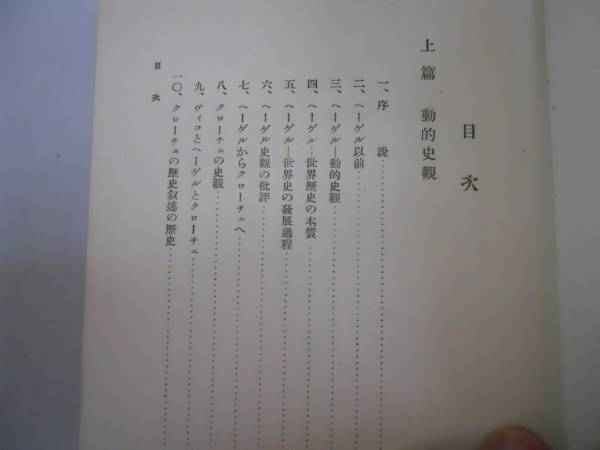 目次
上篇 動的史觀
一、序說
二、ヘーゲル以前
三、ヘーゲル―動的史觀
四、ヘーゲル―世界歷史の本質
五、ヘーゲル―世界史の發展過程
六、ヘーゲル史觀の批評
七、ヘーゲルからクローチェへ
八、クローチェの史觀
九、ヴィコとヘーゲルとクローチェ
一〇、クローチェの歷史叙述の歷史
目次